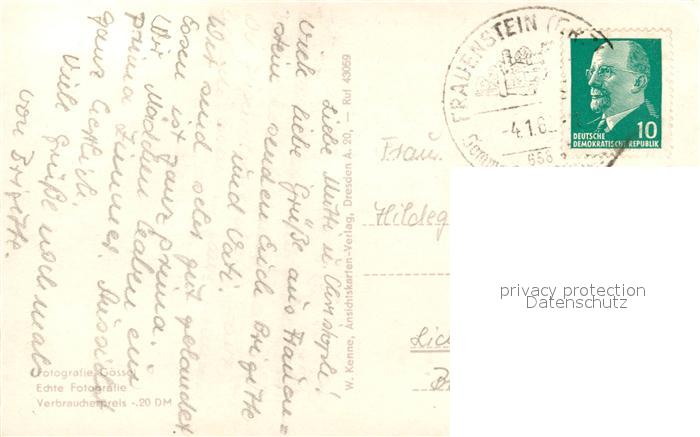 Liebe Mutti u. Christoph!
Viele liebe Grüße aus Frauen=
stein senden Euch Brigitte
und Vati.
Wir sind sehr gut gelandet.
Essen ist ganz prima.
Wir Mädchen haben ein
prima Zimmer. Aussicht
ganz herrlich.
Viele Grüße nochmal
von Brigitte.
Fotografie Gössel
Echte Fotografie
Verbraucherpreis -.20 DM
W. Kenne, Ansichtskarten-Verlag, Dresden A. 20, — Ruf 43059
FRAUENSTEIN (ERZ
-4.1.6
DEUTSCHE
DEMOKRATISCHE REPUBLIK
10
Frau
Hildeg
privacy protection
Datenschutz